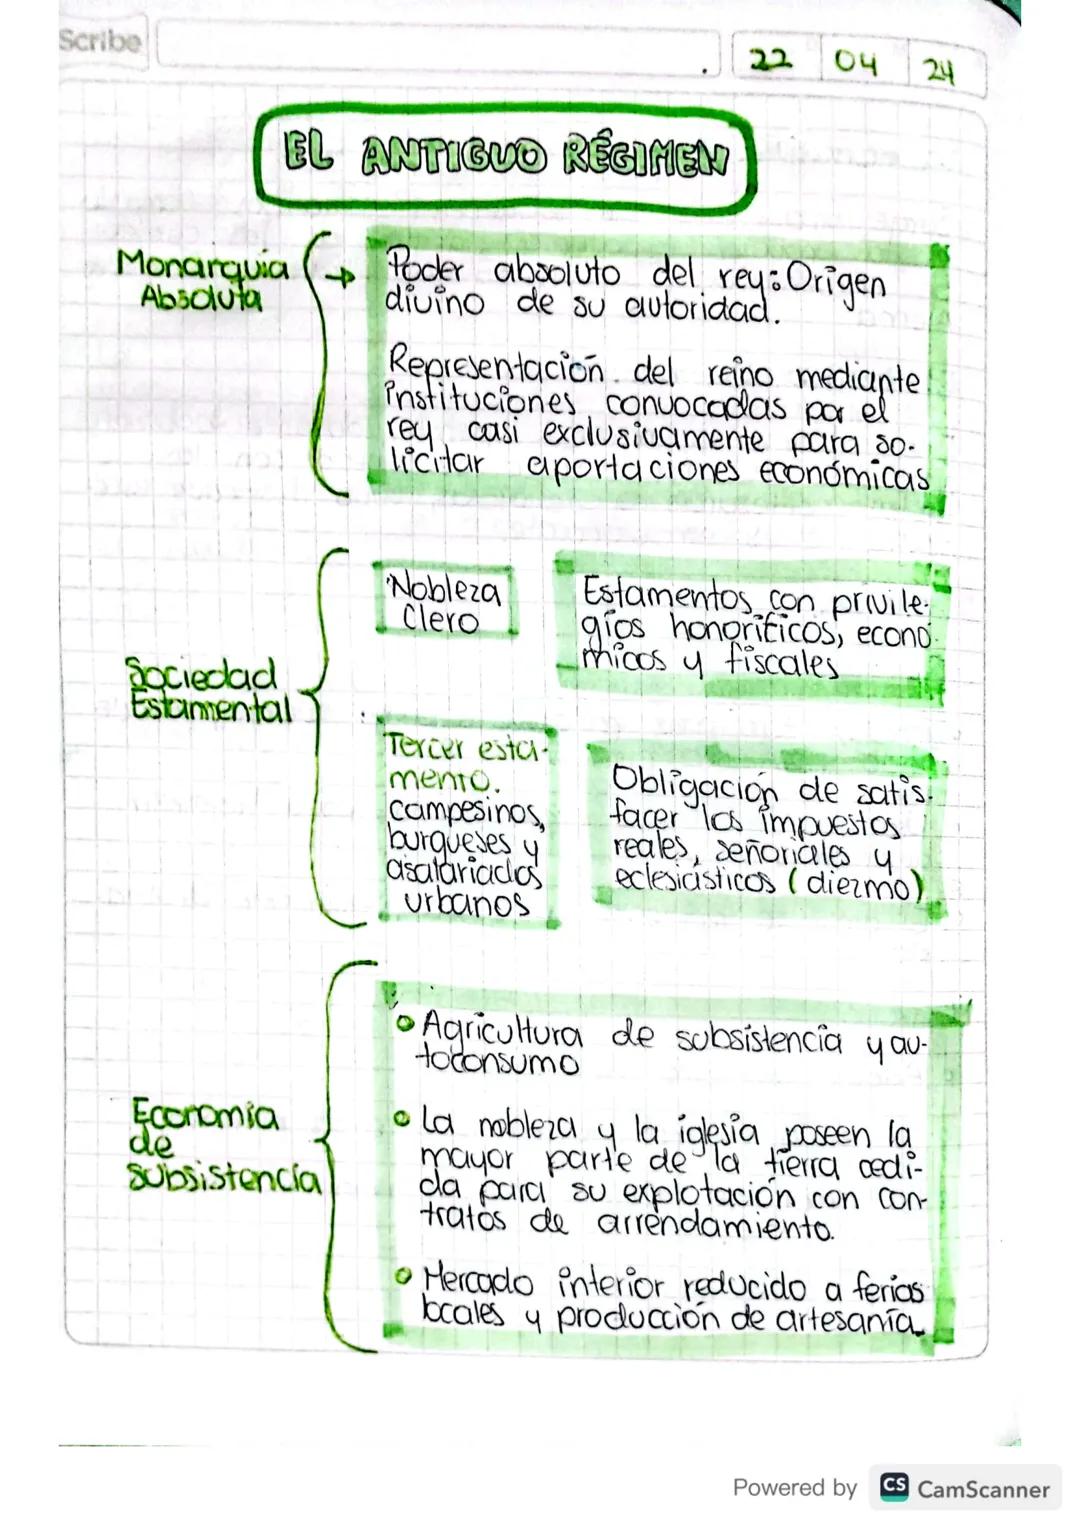 Scribe
22 04 24
EL ANTIGUO RÉGIMEN
Monarquia
Absoluta
Poder absoluto del rey: Origen
divino de su autoridad.
Representación del reino mediante
instituciones convocadas por el
rey casi exclusivamente para so-
licitar aportaciones económicas
Sociedad
Estamental
Nobleza
Clero
Estamentos con privile-
gios honoríficos, econó-
micos y fiscales
Tercer esta-
mento.
campesinos,
burgueses y
asalariados
urbanos
Obligación de satis-
facer los impuestos
reales, señoriales y
eclesiásticos (diezmo)
Economía
de
subsistencia
Agricultura de subsistencia y au-
toconsumo
La nobleza y la iglesia poseen la
mayor parte de la tierra cedi-
da para su explotación con con-
tratos de arrendamiento.
Mercado interior reducido a ferias
locales y producción de artesanía.
Powered by CS CamScanner